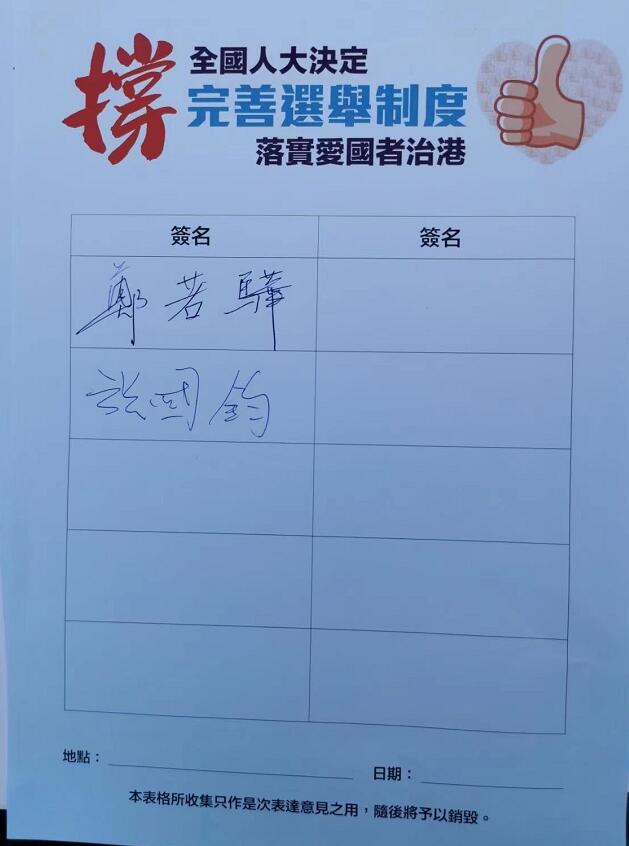 撐
全國人大決定
完善選舉制度
落實愛國者治港
簽名 簽名
鄭若驊
張國鈞
地點：
日期：
本表格所收集只作是次表達意見之用，隨後將予以銷毀。